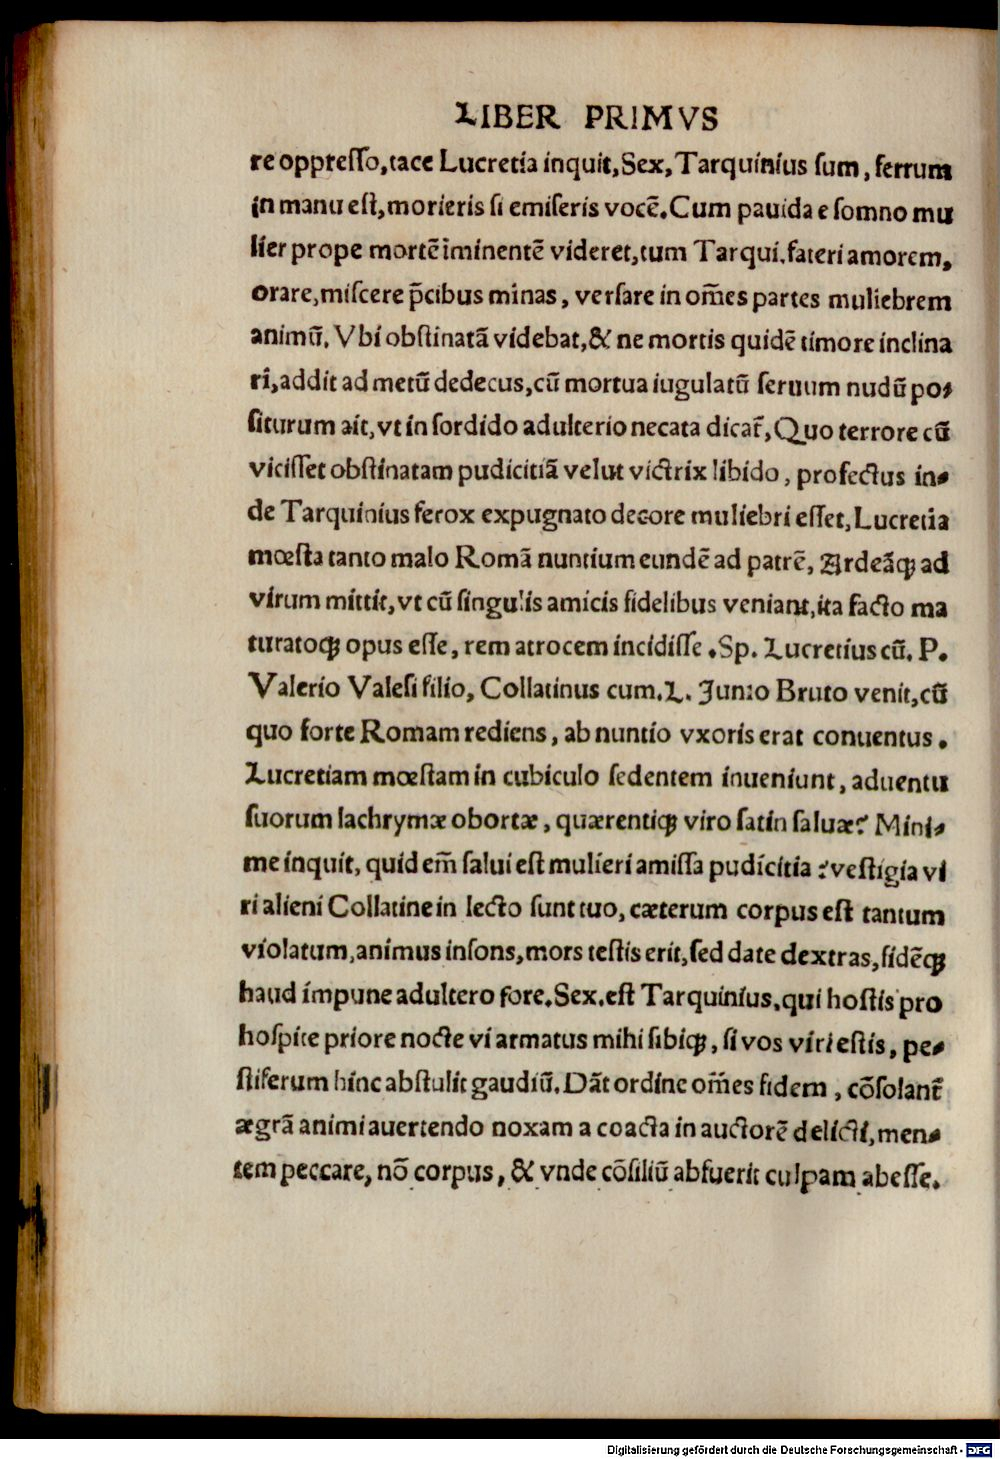 LIBER PRIMVS
re oppreſſo, tace Lucretia inquit, Sex, Tarquinius ſum, ferrum
in manu eſt, morieris ſi emiſeris vocē. Cum pauida e ſomno mu
lier prope mortē iminentē videret, tum Tarqui. fateri amorem,
orare, miſcere p̄cibus minas, verſare in om̄es partes muliebrem
animū. Vbi obſtinatā videbat, & ne mortis quidē timore inclina
ri, addit ad metū dedecus, cū mortua iugulatū ſeruum nudū po⸗
ſiturum ait, vt in ſordido adulterio necata dicat᷑, Quo terrore cū
viciſſet obſtinatam pudicitiā velut victrix libido, profectus in⸗
de Tarquinius ferox expugnato decore muliebri eſſet, Lucretia
mœſta tanto malo Romā nuntium eundē ad patrē, Ardeāq̢ ad
virum mittit, vt cū ſingulis amicis fidelibus veniant, ita facto ma
turatoq̢ opus eſſe, rem atrocem incidiſſe. Sp. Lucretius cū. P.
Valerio Valeſi filio, Collatinus cum. L. Junio Bruto venit, cū
quo forte Romam rediens, ab nuntio vxoris erat conuentus.
Lucretiam mœſtam in cubiculo ſedentem inueniunt, aduentu
ſuorum lachrymæ obortæ, quærentiq̢ viro ſatin ſaluæ? Mini⸗
me inquit, quid em̄ ſalui eſt mulieri amiſſa pudicitia? veſtigia vi
ri alieni Collatine in lecto ſunt tuo, cæterum corpus eſt tantum
violatum, animus inſons, mors teſtis erit, ſed date dextras, fidēq̢
haud impune adultero fore. Sex. eſt Tarquinius. qui hoſtis pro
hoſpite priore nocte vi armatus mihi ſibiq̢, ſi vos viri eſtis, pe⸗
ſtiferum hinc abſtulit gaudiū. Dāt ordine om̄es fidem, cōſolant᷑
ægrā animi auertendo noxam a coacta in auctorē delicti, men⸗
tem peccare, nō corpus, & vnde cōſiliū abfuerit culpam abeſſe.
Digitalisierung gefördert durch die Deutsche Forschungsgemeinschaft - DFG